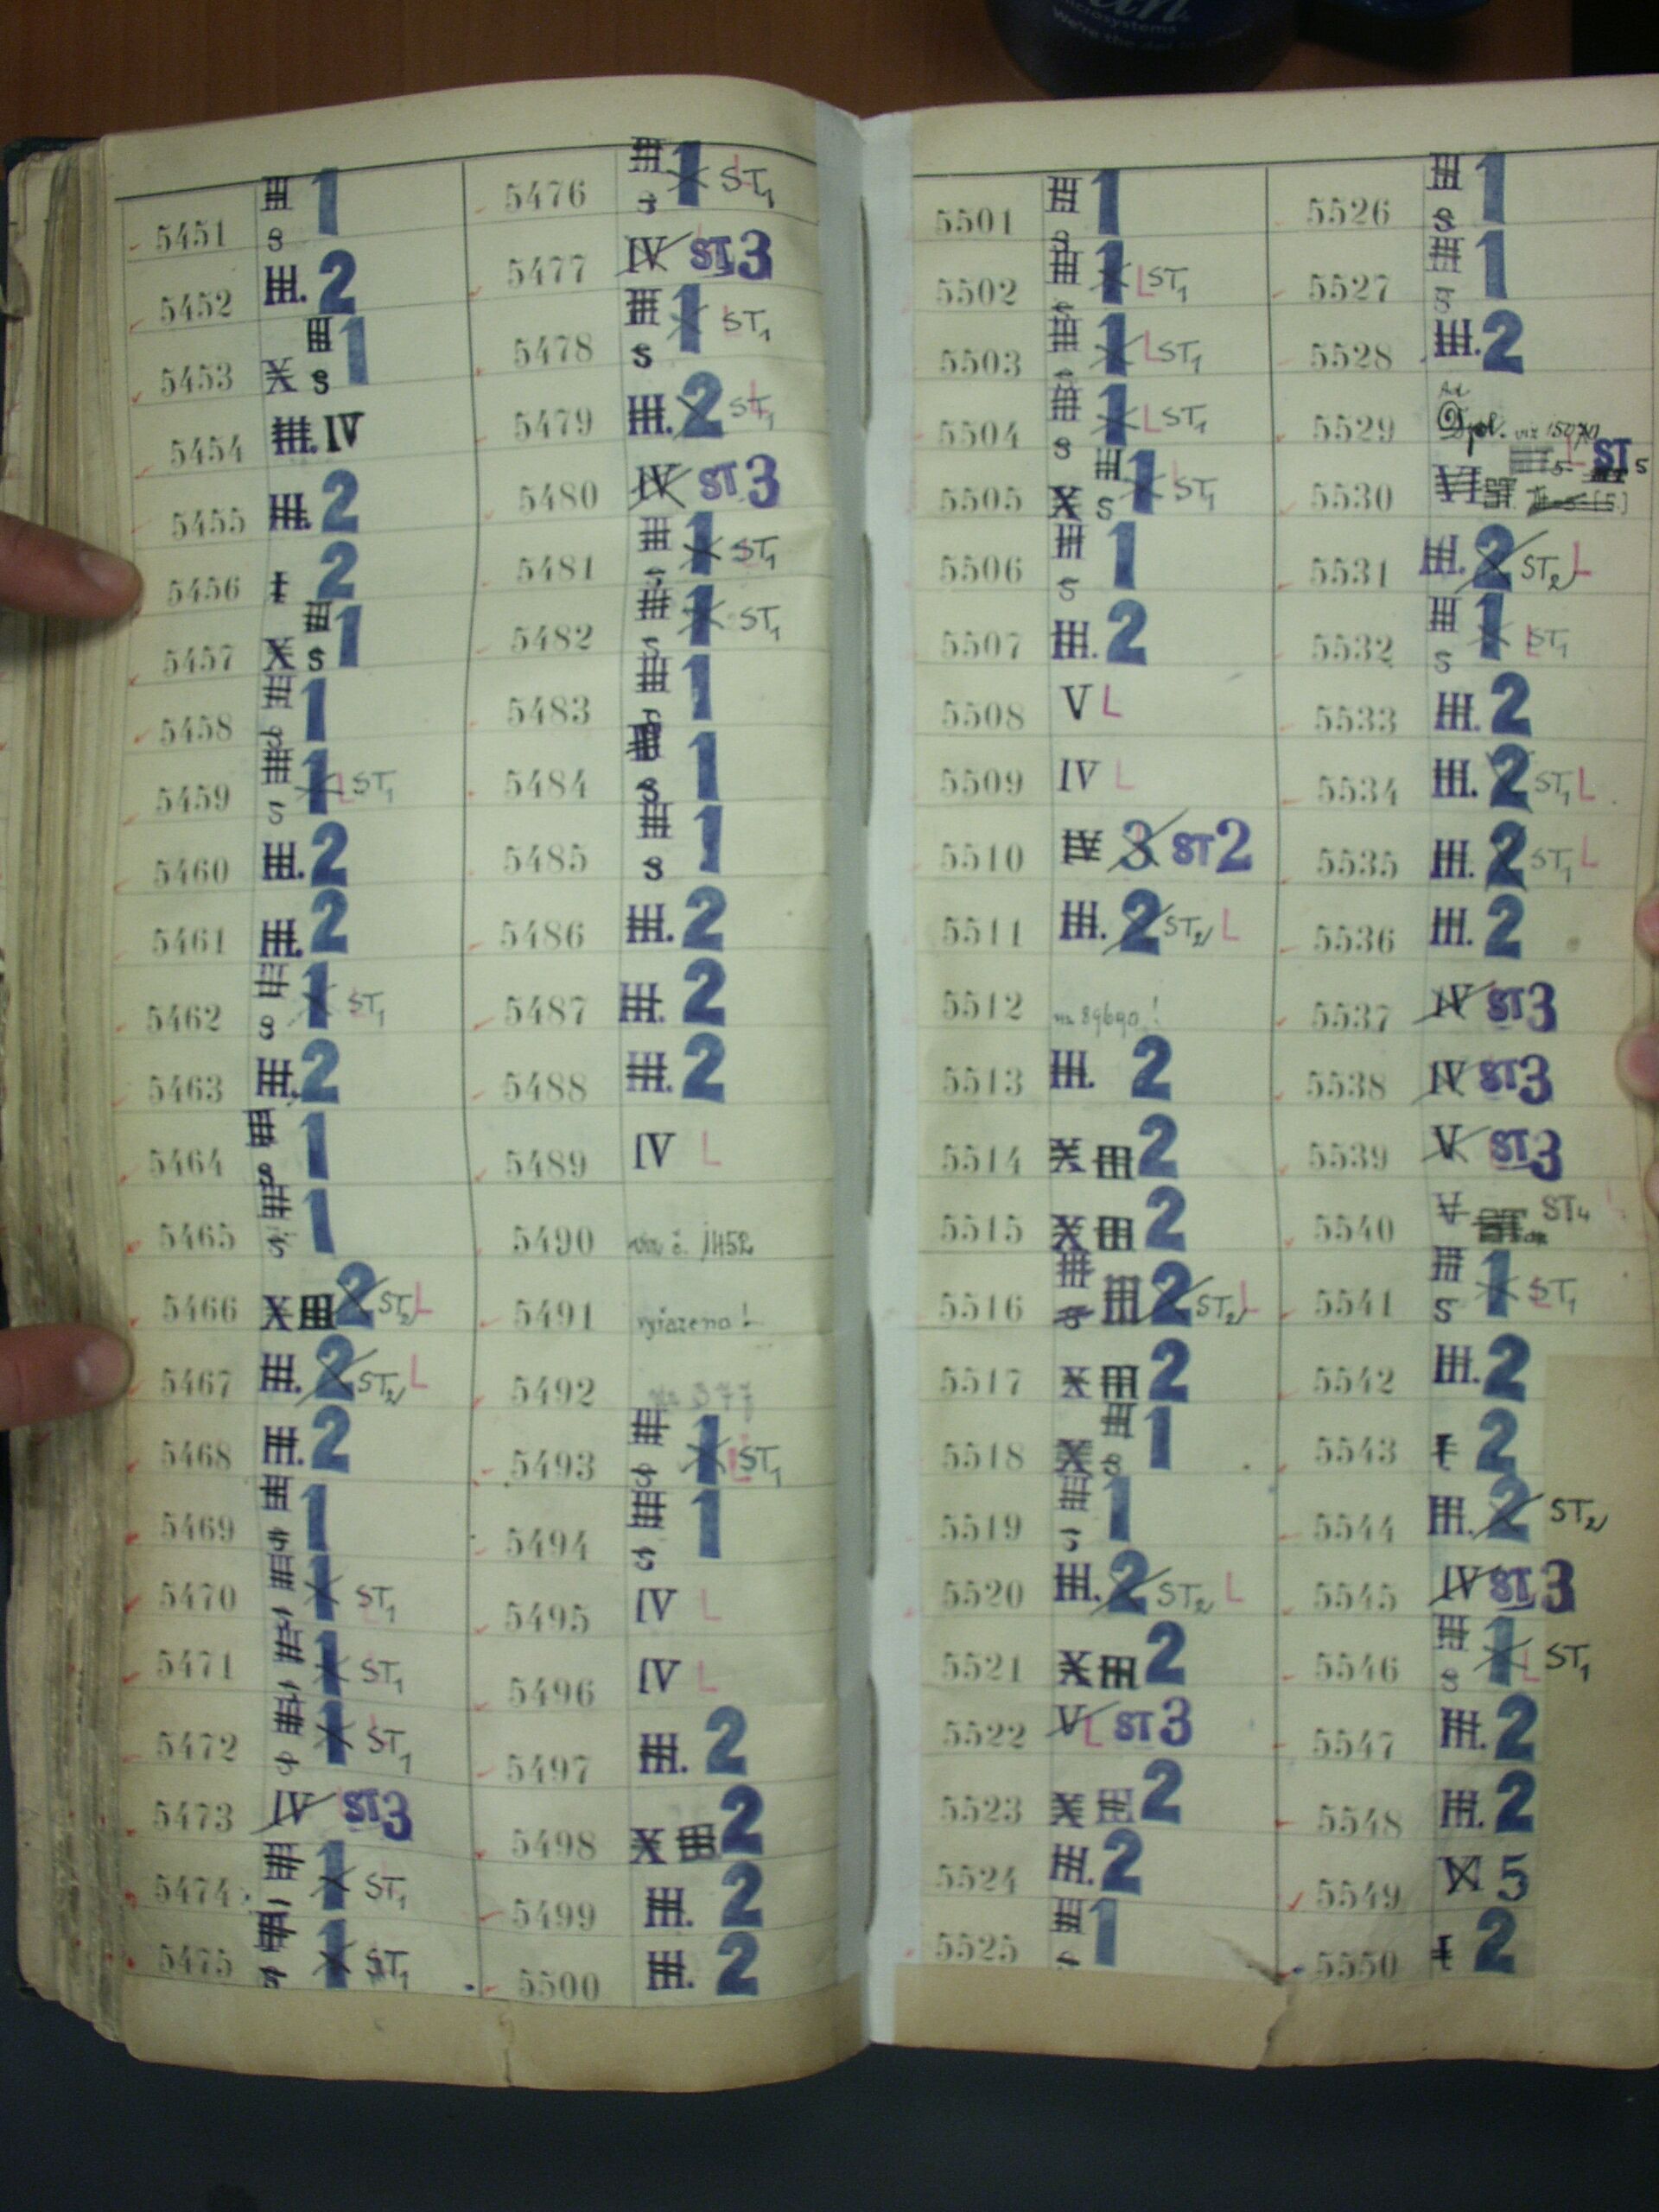 un
microsystems
5451 III s 1
5452 III. 2
5453 X III s 1
5454 III. IV
5455 III. 2
5456 I 2
5457 X III s 1
5458 III s 1
5459 III s 1 L ST1
5460 III. 2
5461 III. 2
5462 III s 1 ST1
5463 III. 2
5464 III s 1
5465 III s 1
5466 X III 2 ST2 L
5467 III. 2 ST2 L
5468 III. 2
5469 III s 1
5470 III s 1 ST1
5471 III s 1 ST1
5472 III s 1 ST1
5473 IV ST 3
5474 III s 1 ST1
5475 III s 1 ST1
5476 III s 1 L ST1
5477 IV ST 3
5478 III s 1 L ST1
5479 III. 2 L ST1
5480 IV ST 3
5481 III s 1 ST1
5482 III s 1 ST1
5483 III s 1
5484 III s 1
5485 III s 1
5486 III. 2
5487 III. 2
5488 III. 2
5489 IV L
5490 viz č. 1452
5491 vyřazeno!
5492
5493 III s 1 L ST1
5494 III s 1
5495 IV L
5496 IV L
5497 III. 2
5498 X III 2
5499 III. 2
5500 III. 2
5501 III s 1
5502 III s 1 L ST1
5503 III s 1 L ST1
5504 III s 1 L ST1
5505 X III s 1 L ST1
5506 III s 1
5507 III. 2
5508 V L
5509 IV L
5510 IV 3 ST 2
5511 III. 2 ST2 L
5512 viz 89690!
5513 III. 2
5514 X III 2
5515 X III 2
5516 III s III 2 ST2 L
5517 X III 2
5518 X III s 1
5519 III s 1
5520 III. 2 ST2 L
5521 X III 2
5522 V L ST 3
5523 X III 2
5524 III. 2
5525 III s 1
5526 III s 1
5527 III s 1
5528 III. 2
5529 Dpl. viz 15070
5530 VI L ST 5
5531 III. 2 ST2 L
5532 III s 1 L ST1
5533 III. 2
5534 III. 2 ST1 L
5535 III. 2 ST1 L
5536 III. 2
5537 IV ST 3
5538 IV ST 3
5539 V ST 3
5540 V ST4
5541 III s 1 L ST1
5542 III. 2
5543 I 2
5544 III. 2 ST2
5545 IV ST 3
5546 III s 1 L ST1
5547 III. 2
5548 III. 2
5549 VI 5
5550 I 2